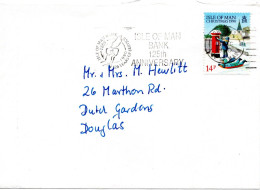 ISLE OF MAN
CHRISTMAS 1990
ISLE OF MAN
BANK
125th
ANNIVERSARY
14P
Mr. & Mrs. M. Hewlitt
26 Marthon Rd.
Dutch Gardens
Douglas